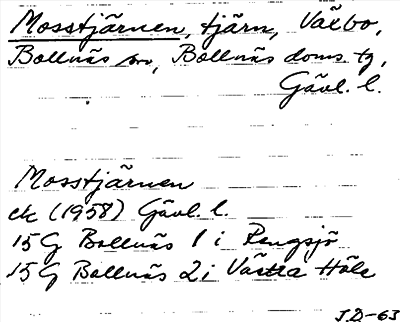 Mosstjärnen, tjärn, Växbo,
Bollnäs sn, Bollnäs doms. tg,
Gävl. l.
Mosstjärnen
ek (1958) Gävl. l.
15G Bollnäs 1 i Rengsjö
15G Bollnäs 2 i Västra Höle
J.D-63